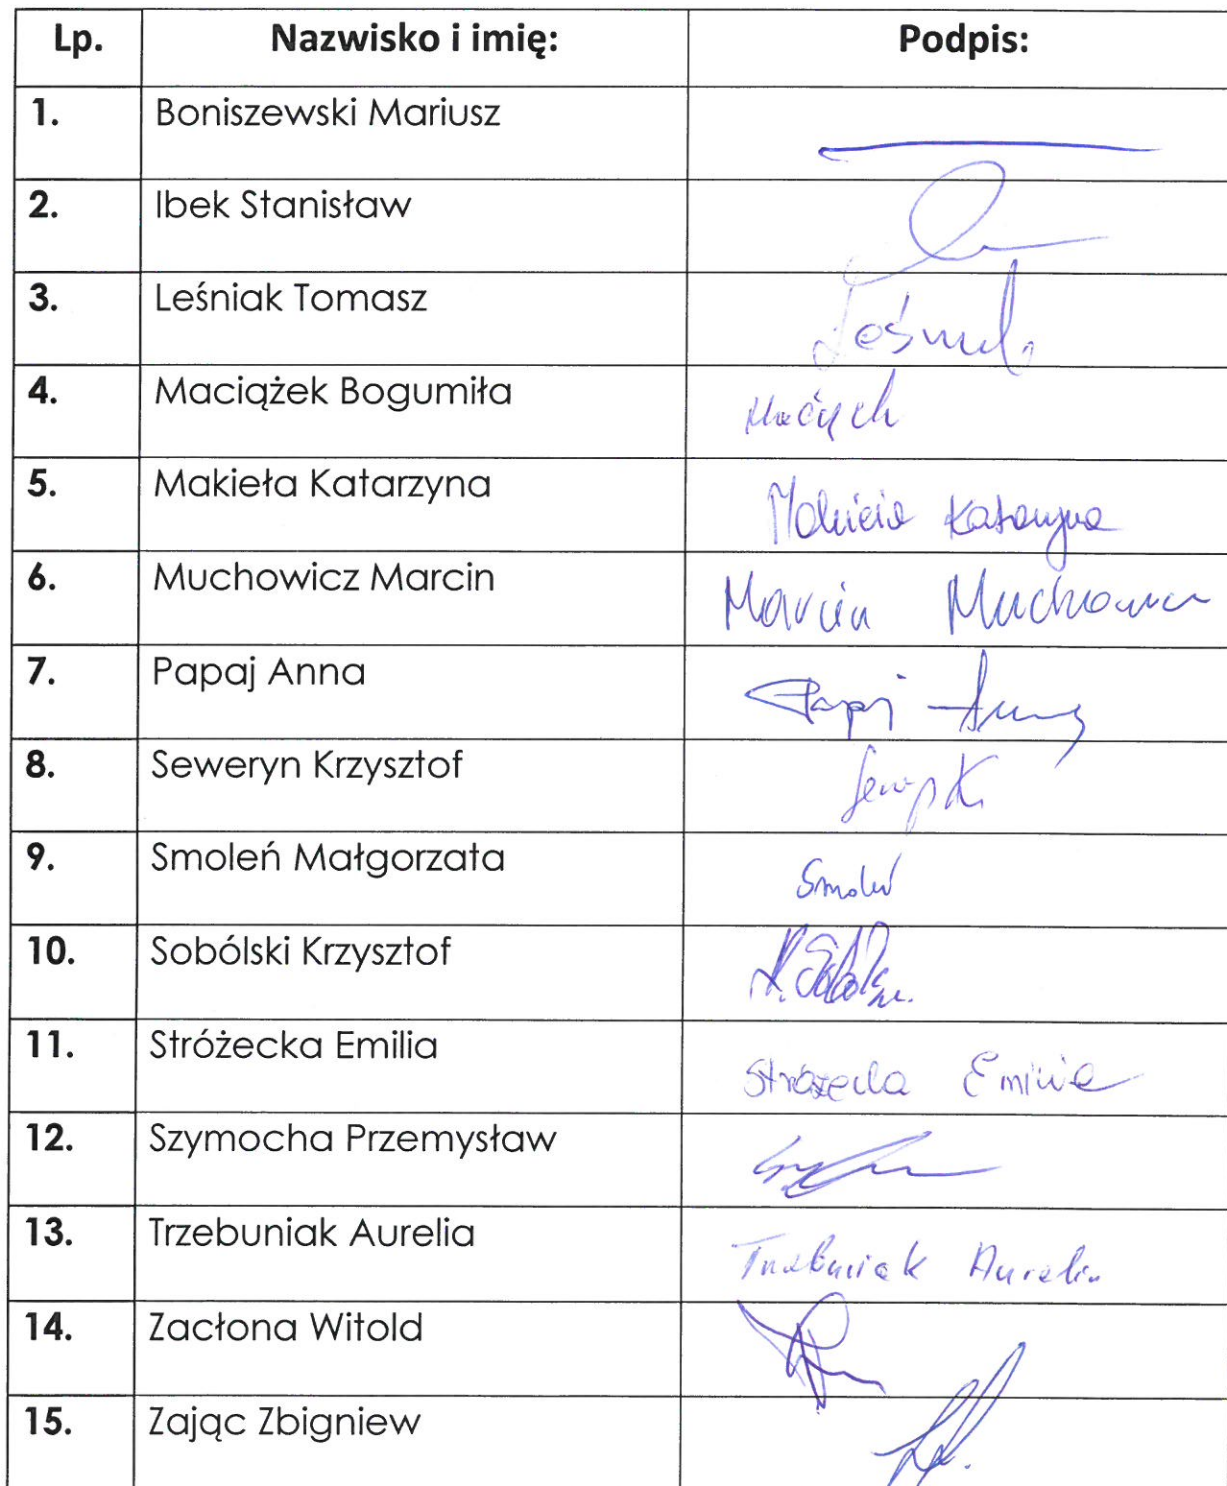 Lp. Nazwisko i imię: Podpis:
1. Boniszewski Mariusz
2. Ibek Stanisław
3. Leśniak Tomasz
4. Maciążek Bogumiła
5. Makieła Katarzyna Katarzyna
6. Muchowicz Marcin Marcin
7. Papaj Anna
8. Seweryn Krzysztof
9. Smoleń Małgorzata Smoleń
10. Sobólski Krzysztof
11. Stróżecka Emilia Stróżecka Emilia
12. Szymocha Przemysław
13. Trzebuniak Aurelia Trzebuniak Aurelia
14. Zacłona Witold
15. Zając Zbigniew